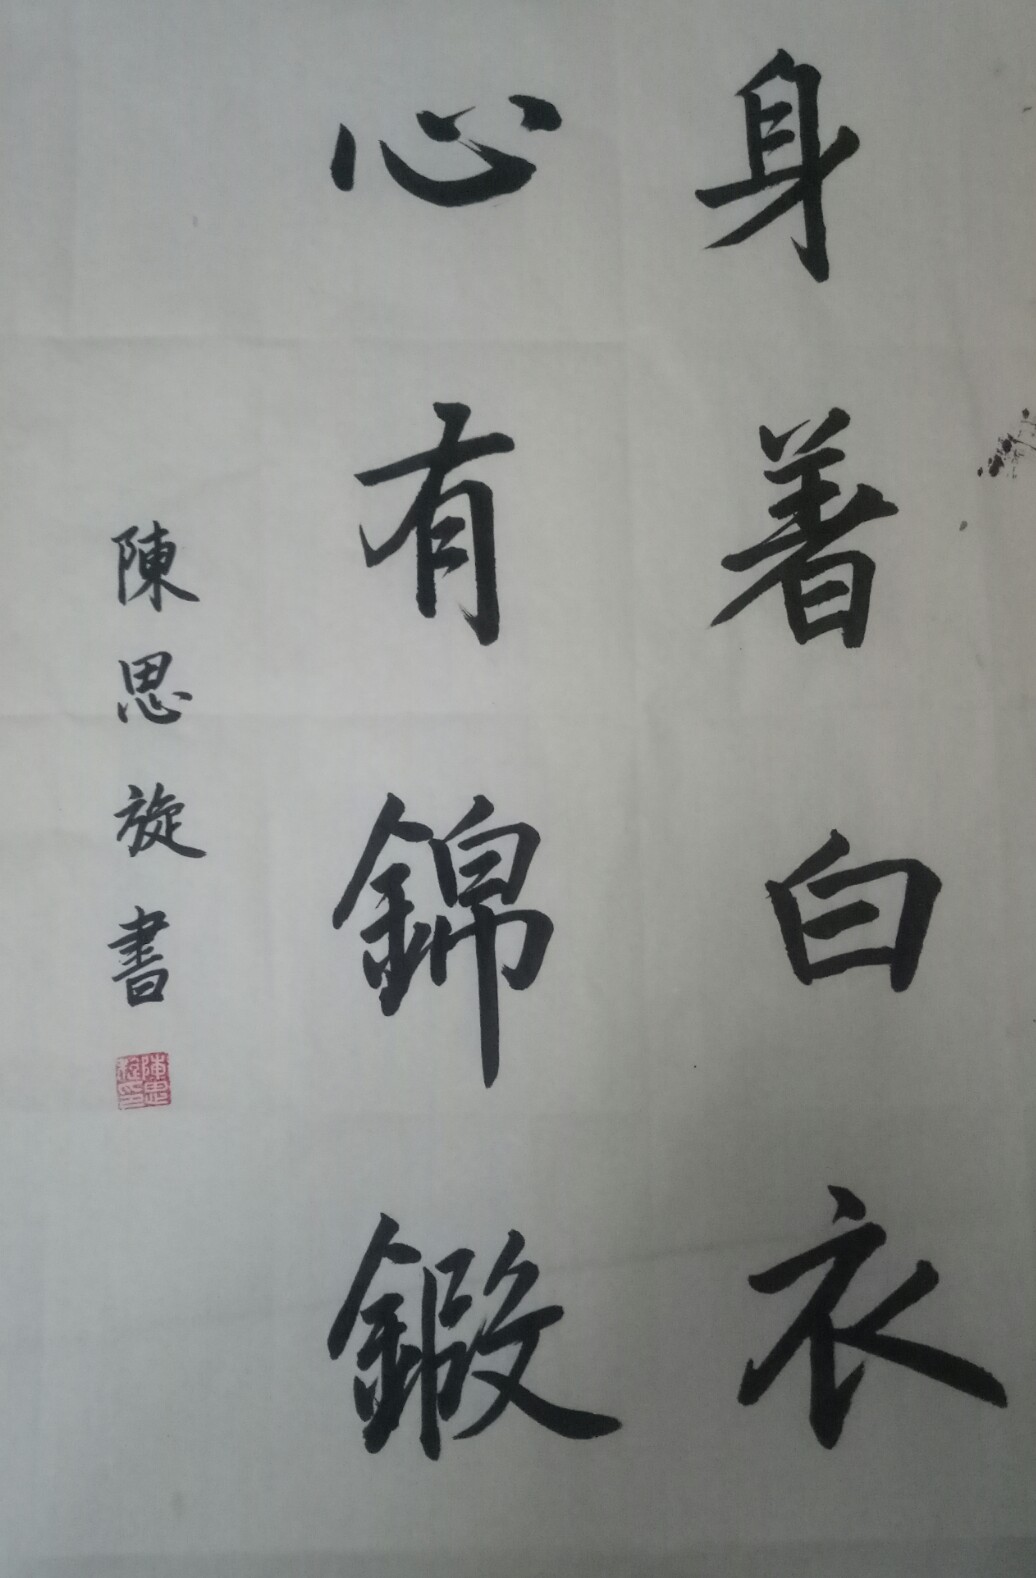 身着白衣
心有錦鍜
陳思旋書
陳思
旋印